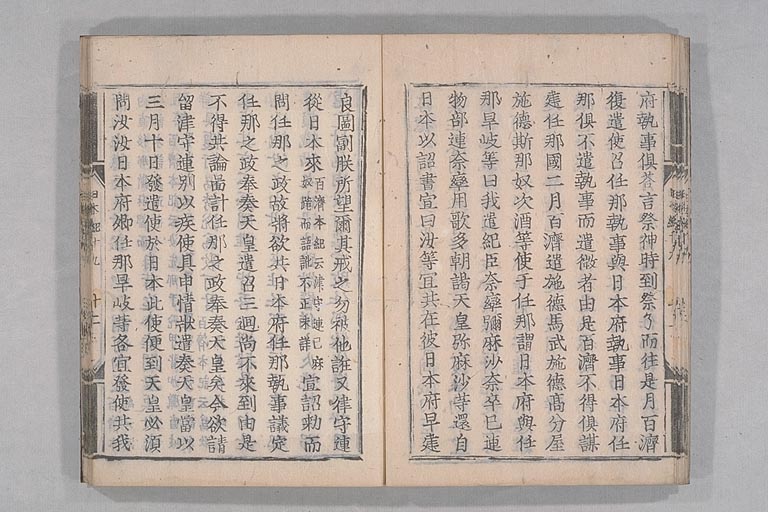 府執事俱荅言祭神時到祭了而往是月百濟
復遣使召任那執事與日本府執事日本府任
那俱不遣執事而遣微者由是百濟不得俱謀
建任那國二月百濟遣施德馬武施德高分屋
施德斯那奴次酒等使于任那謂日本府與任
那旱岐等曰我遣紀臣奈率彌麻沙奈卒巳連
物部連奈率用歌多朝謁天皇弥麻沙等還自
日本以詔書宣曰汝等宜共在彼日本府早建
良圖副朕所望爾其戒之勿被他誑又津守連
從日本來百濟本紀云津守連己麻奴跪而語訛不正未詳宣詔勅而
問任那之政故將欲共日本府任那執事議定
任那之政奉奏天皇遣召三廻尚不來到由是
不得共論啚計任那之政奉奏天皇矣今欲請
留津守連別以疾使具申情狀遣奏天皇當以
三月十日發遣使於日本此使便到天皇必須
問汝汝日本府卿任那旱岐等各宜發使共我
日本紀十九 十二